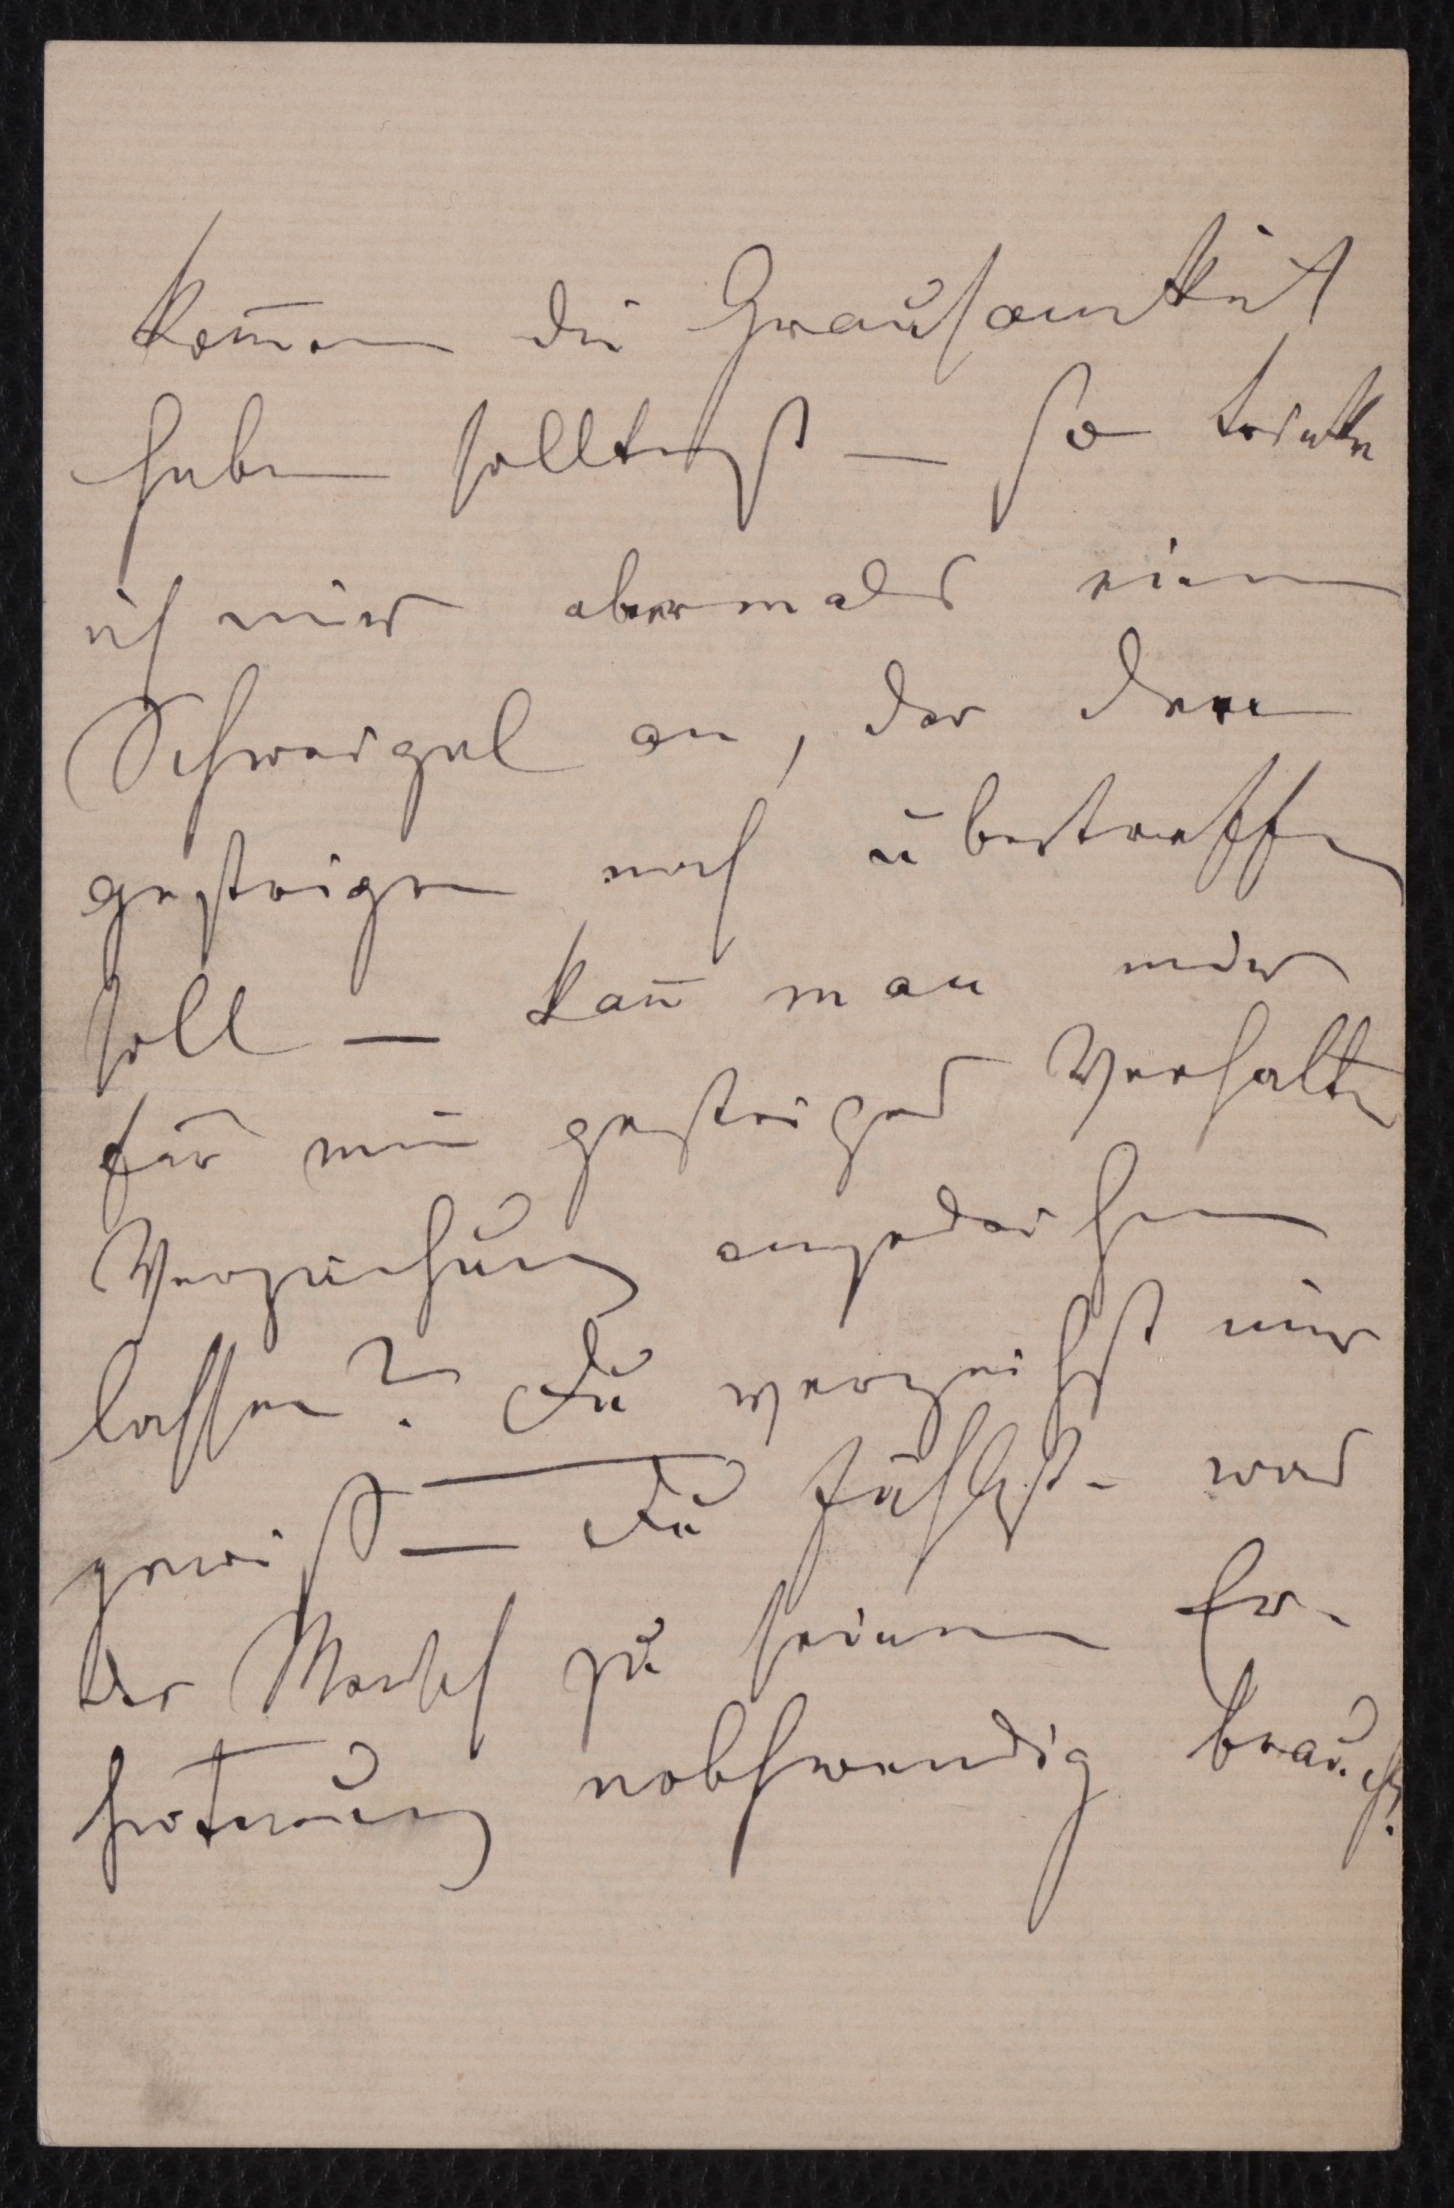 kom̅en die Grausamkeit
haben solltest — so trinke
ich mir abermals einen
Schweigel an, der den
gestrigen noch übertreffen
soll — kan̅ man mir
für mein gestriges Verhalten
Verzeihung angedeihen
lassen? Du verzeihst mir
gewiß — Du fühlst – was
der Mensch zu seiner Er-
nothwendig braucht.